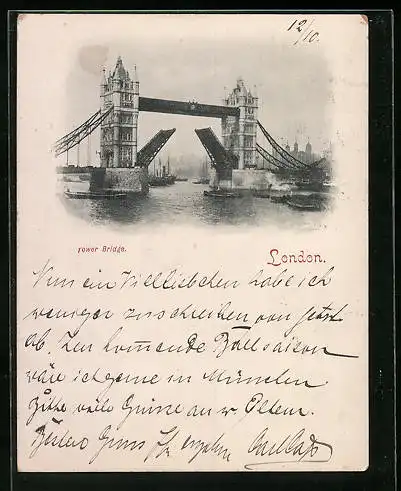 12/10.
Tower Bridge.
London.
Nun ein Vielliebchen habe ich
weniger zuschreiben von jetzt
ab. Zur kommende Ballsaison
wäre ich gerne in München.
Bitte viele Grüsse an w. Eltern.
Besten Gruss